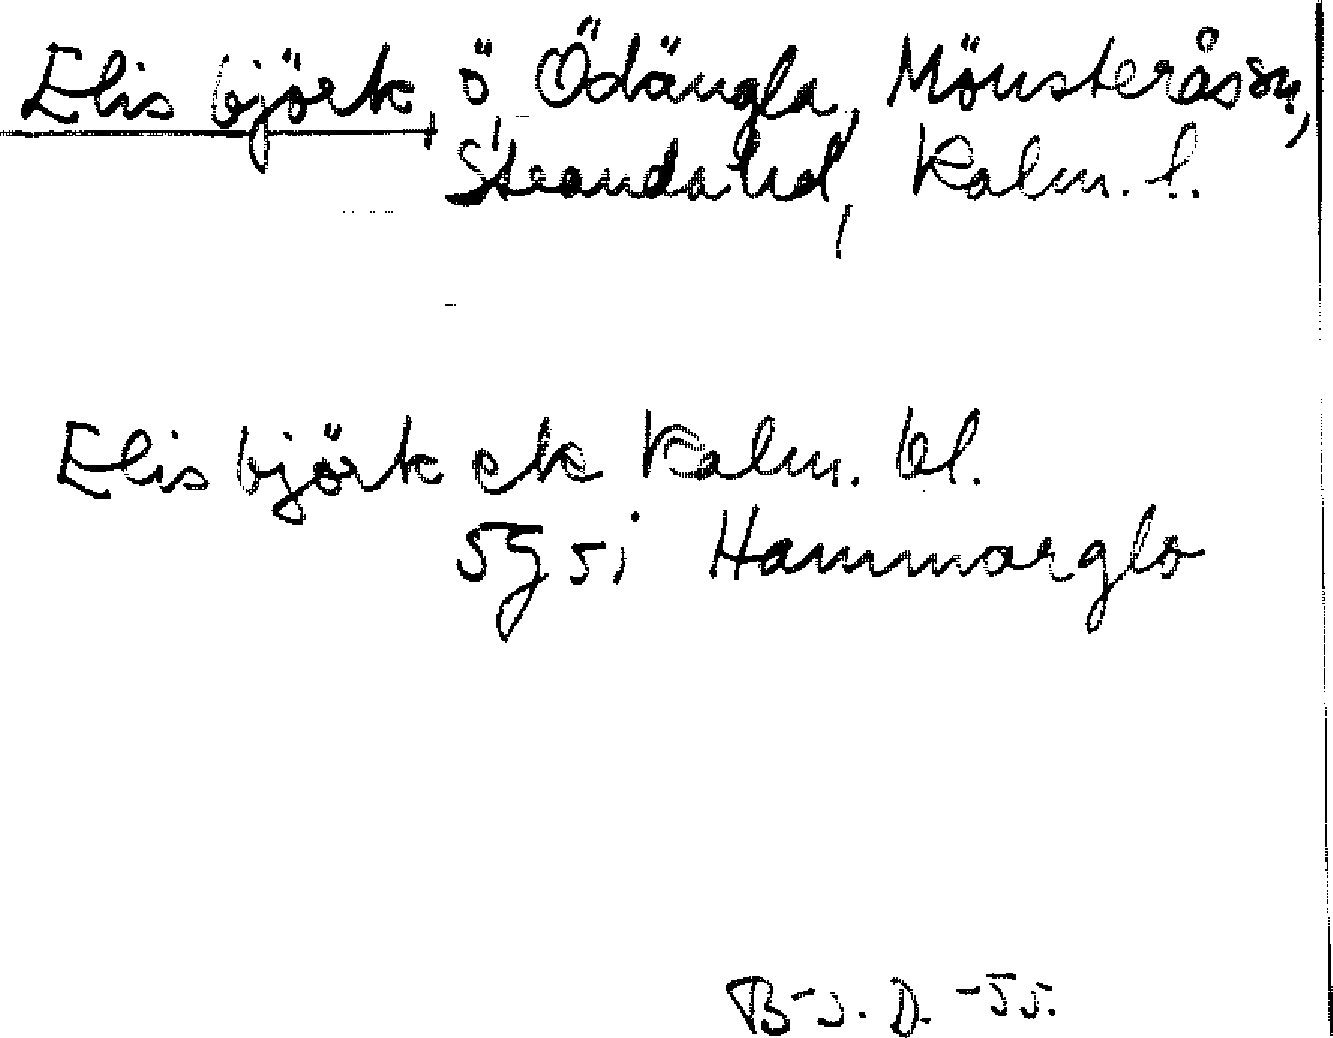 Elis björk, ö, Ödängla, Mönsterås sn,
Stranda hd, Kalm. l.
Elis björk ek Kalm. bl.
5g 5i Hammarglo
B-J. D. -55.